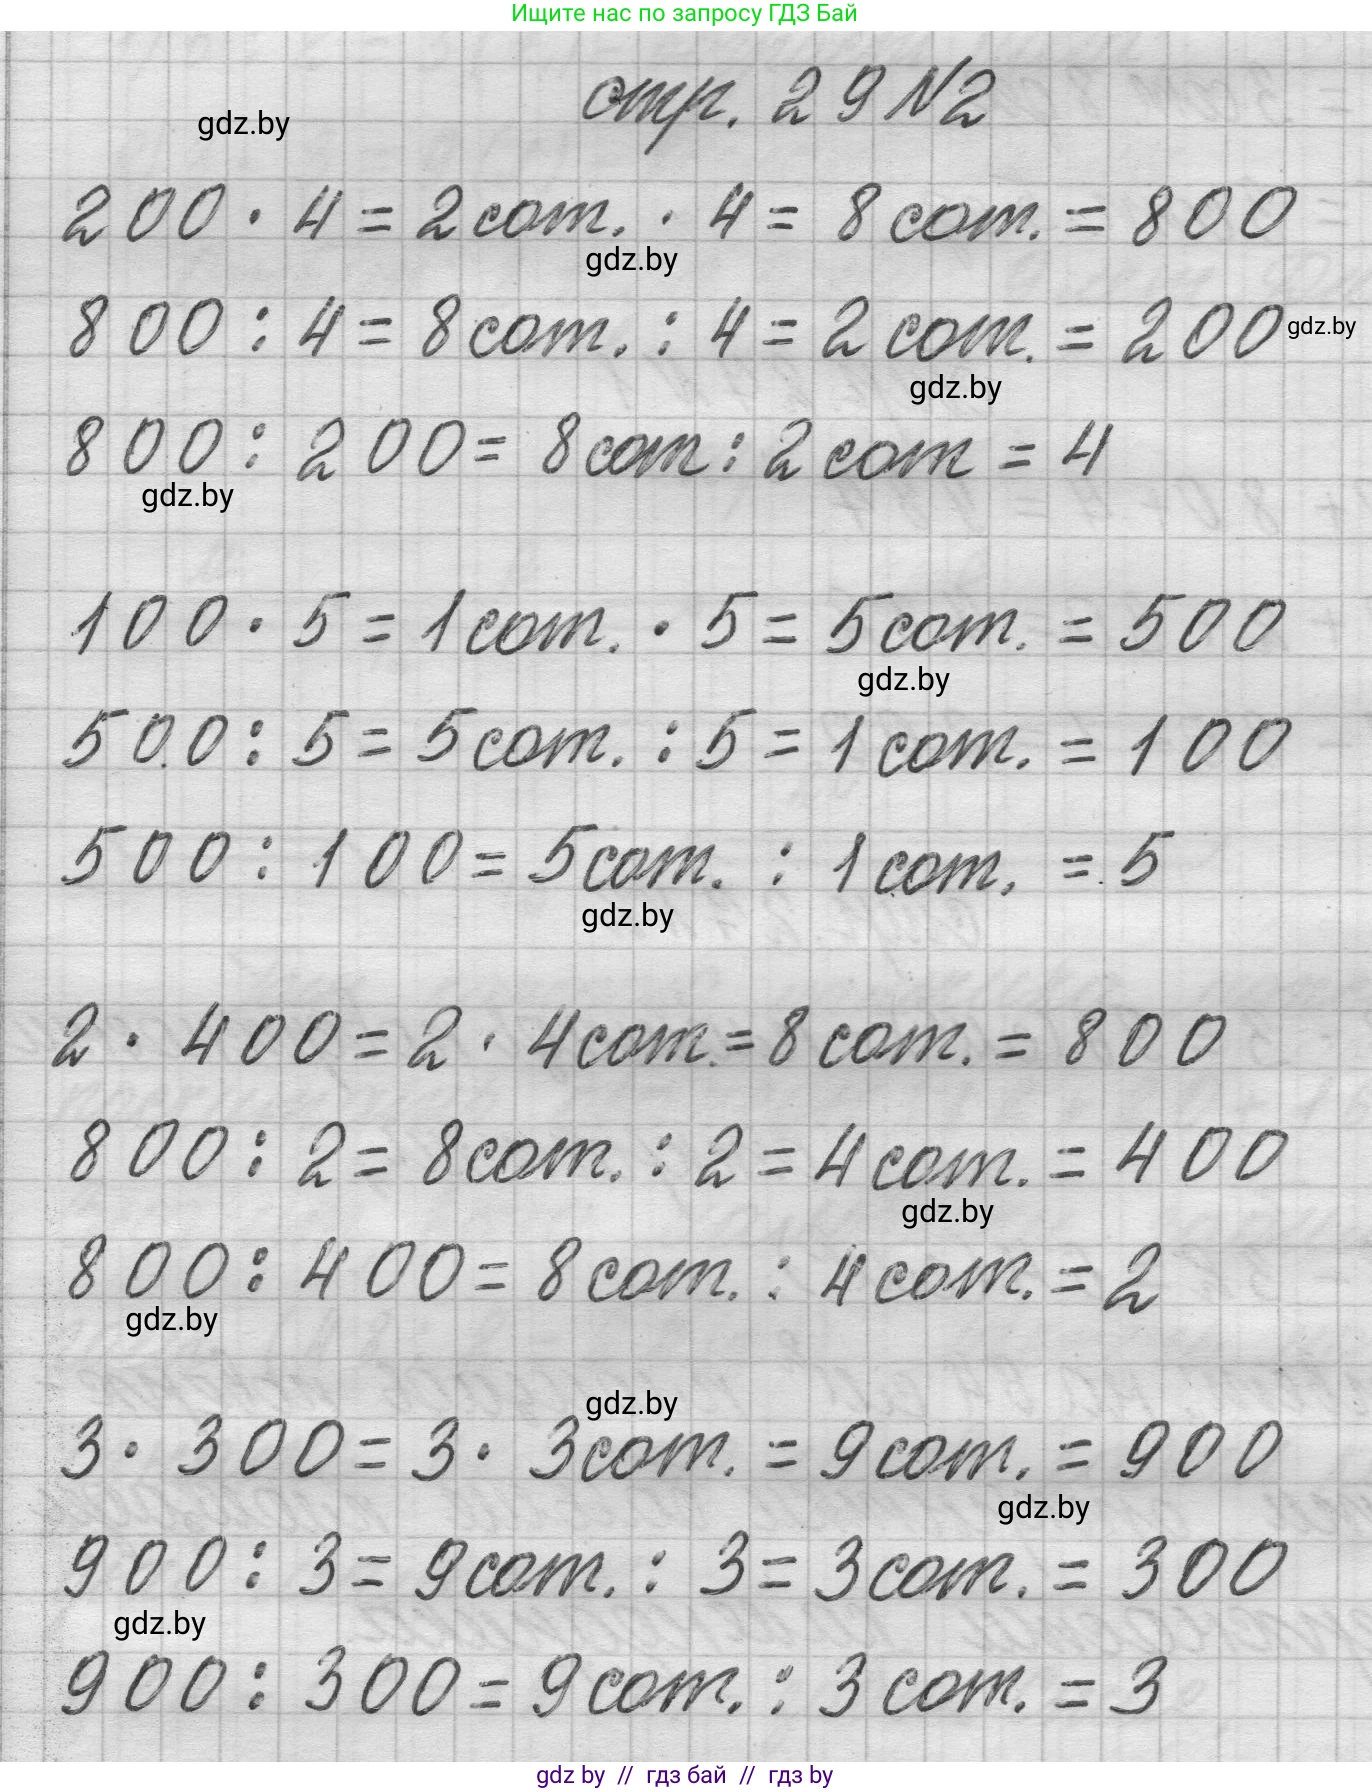 Ищите нас по запросу ГДЗ Бай
стр. 29 №2
gdz.by
200 · 4 = 2 сот. · 4 = 8 сот. = 800
gdz.by
800 : 4 = 8 сот. : 4 = 2 сот. = 200
gdz.by
gdz.by
800 : 200 = 8 сот : 2 сот = 4
gdz.by
100 · 5 = 1 сот. · 5 = 5 сот. = 500
gdz.by
500 : 5 = 5 сот. : 5 = 1 сот. = 100
500 : 100 = 5 сот. : 1 сот. = 5
gdz.by
2 · 400 = 2 · 4 сот. = 8 сот. = 800
800 : 2 = 8 сот. : 2 = 4 сот. = 400
gdz.by
800 : 400 = 8 сот. : 4 сот. = 2
gdz.by
gdz.by
3 · 300 = 3 · 3 сот. = 9 сот. = 900
gdz.by
900 : 3 = 9 сот. : 3 = 3 сот. = 300
gdz.by
900 : 300 = 9 сот. : 3 сот. = 3
gdz by // гдз бай // гдз by